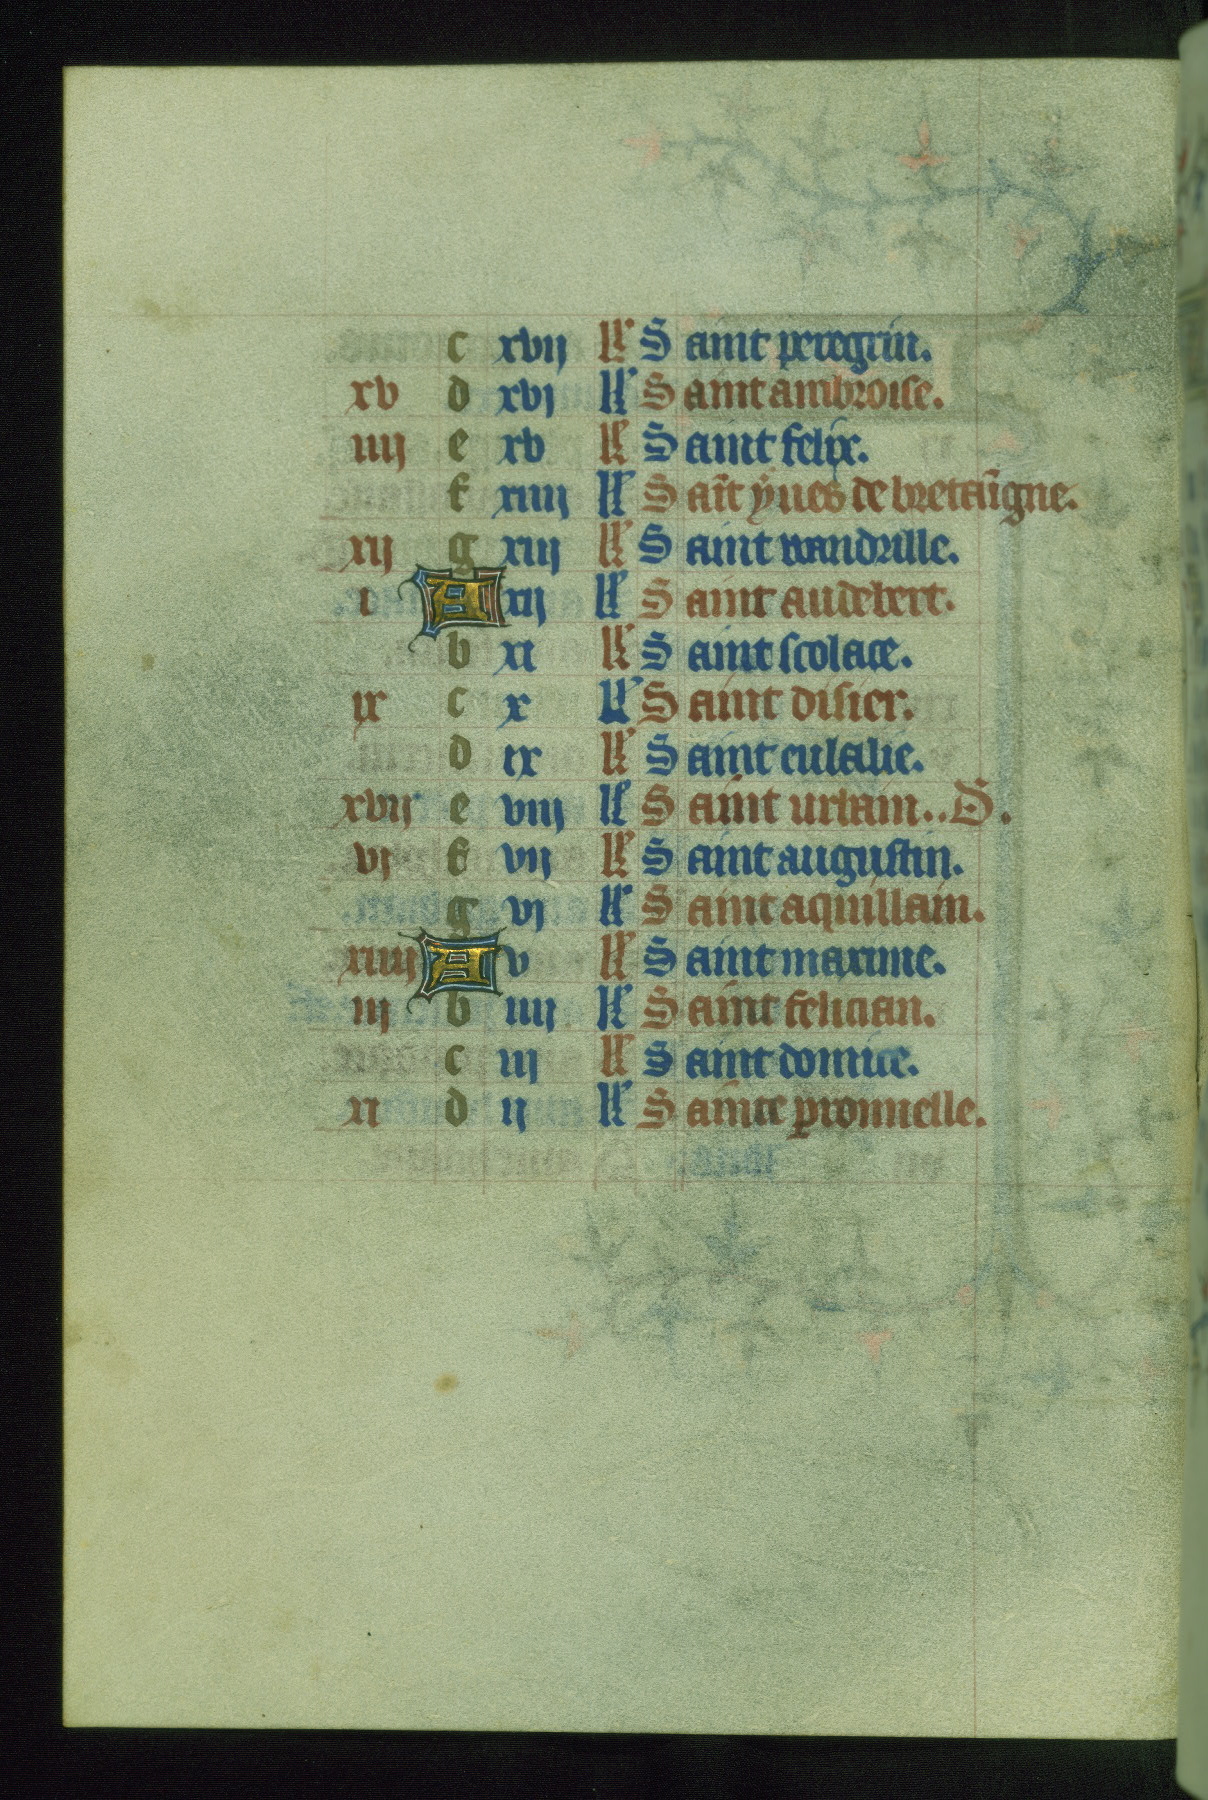 c xvij kl' Saint peregrin.
xv d xvj kl' Saint ambroise.
iiij e xv kl' Saint felix.
f xiiij kl' Sait yues de bretaigne.
xij g xiij kl' Saint wandrille.
i A xij kl' Saint audebert.
b xi kl' Saint scolace.
ix c x kl' Saint disier.
d ix kl' Saint eulalie.
xvij e viij kl' Saint urbain..D.
vj f vij kl' Saint augustin.
g vj kl' Saint aquillain.
xiiij A v kl' Saint maxime.
iij b iiij kl' Saint felician.
c iij kl' Saint domice.
xi d ij kl' Sainte pronnelle.